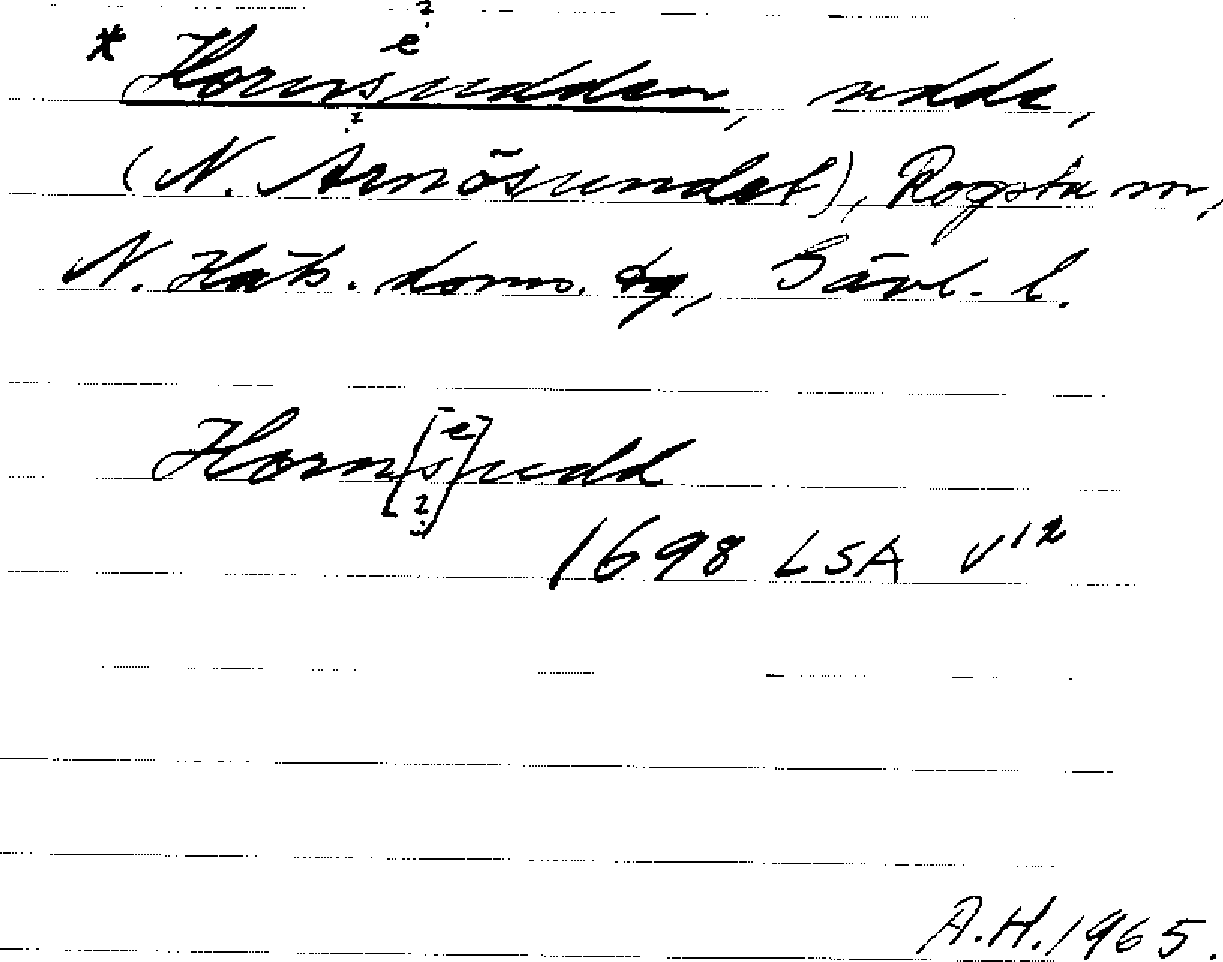 * Hornsudden, udde,
(N. Arnösundet), Rogsta sn,
N. Häls. doms. tg, Gävl. l.
Horn[s]udd
1698 LSA V¹²
A.H. 1965.